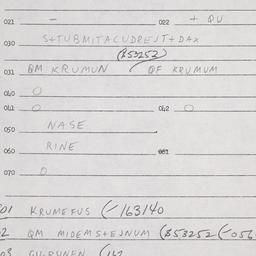 021 - 022 + QU
030 S+TUBMITACUDREJT+DAX
(853253)
031 QM KRUMUN QF KRUMUM
040 O
041 O 042 O
050 NASE
060 RINE 061
070 O
01 KRUMEFUS (-163140
2 QM MIDEMS+EJNUM (853252 (-056
03 (162